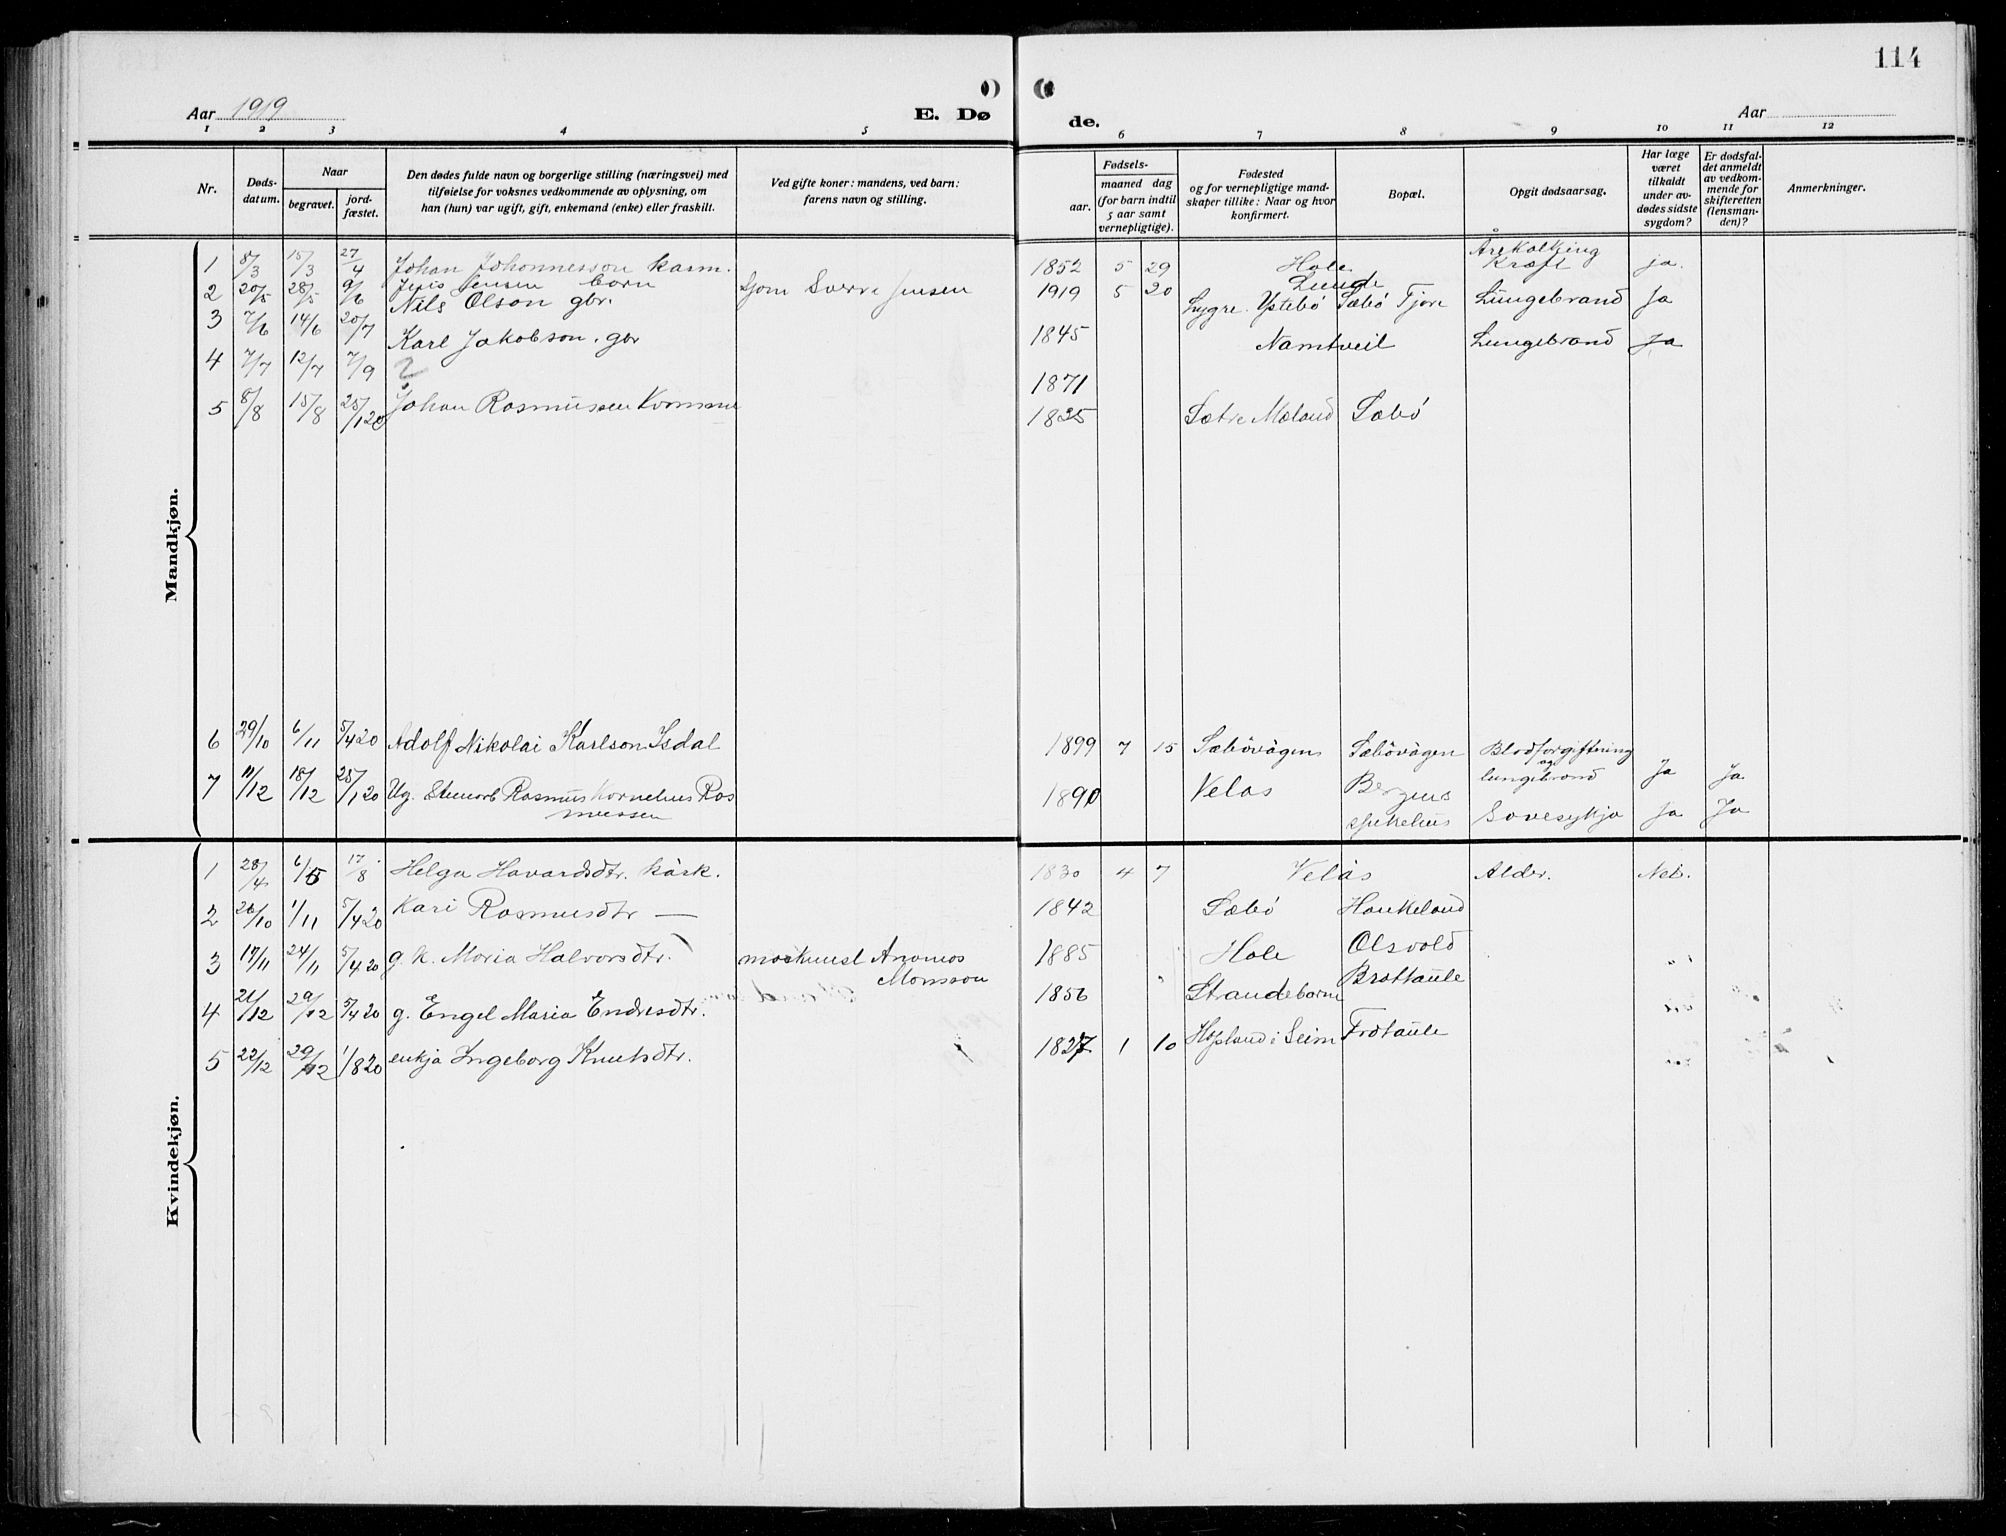 114
Aar 1919
E. Dø
de.
Aar
1 2 3 4 5 6 7 8 9 10 11 12
Nr.
Døds-
datum.
Naar
begravet.
jord-
fæstet.
Den dødes fulde navn og borgerlige stilling (næringsvei) med
tilføielse for voksnes vedkommende av oplysning, om
han (hun) var ugift, gift, enkemand (enke) eller fraskilt.
Ved gifte koner: mandens, ved barn:
farens navn og stilling.
Fødsels-
aar.
maaned dag
(for barn indtil
5 aar samt
vernepligtige).
Fødested
og for vernepligtige mand-
skaper tillike: Naar og hvor
konfirmert.
Bopæl.
Opgit dødsaarsag.
Har læge
været
tilkaldt
under av-
dødes sidste
sygdom?
Er dødsfal-
det anmeldt
av vedkom-
mende for
skifteretten
(lensman-
den)?
Anmerkninger.
Mandkjøn.
1 8/3 15/3 27/4 Johan Johannesson karm. 1852 5 29 Hole Årekalking Kræft ja.
2 20/5 28/5 9/6 Jensen born Sverre Jensen 1919 5 20 Lunde
3 7/6 14/6 20/7 Nils Olson gbr. 1845 Lygre Ystebö Sæbö Tjore Lungebrand Ja
4 7/7 12/7 7/9 Karl Jakobson. gbr ? 1871 Namtveit Lungebrand Ja
5 8/8 15/8 25/1 20 Johan Rasmussen Kvamme 1835 Sætre Mæland Sæbö
6 29/10 6/11 5/4 20 Adolf Nikolai Karlson Isdal 1899 7 15 Sæbövågen Sæbövågen Blodforgiftning
og lungebrand Ja Ja
7 11/12 18/12 25/1 20 Ug. Rasmus Kornelius Ras
mussen 1890 Velas Bergens
sjukehus Sovesykja Ja Ja
Kvindekjøn.
1 28/4 6/5 17/8 Helga Havardsdtr. kårk. 1830 4 7 Velås Alder. Nei.
2 26/10 1/11 5/4 20 Kari Rasmusdtr — 1842 Sæbö Haukeland
3 17/11 24/11 5/4 20 g. k. Maria Halvorsdtr. Monsson 1885 Hole Olsvold
4 21/12 29/12 5/4 20 g. Engel Maria Endresdtr. 1856 Strandeborne Brottaule
5 22/12 29/12 1/8 20 enkja Ingeborg Knutsdtr. 1827 1 10 Hopland i Seim Frotaule